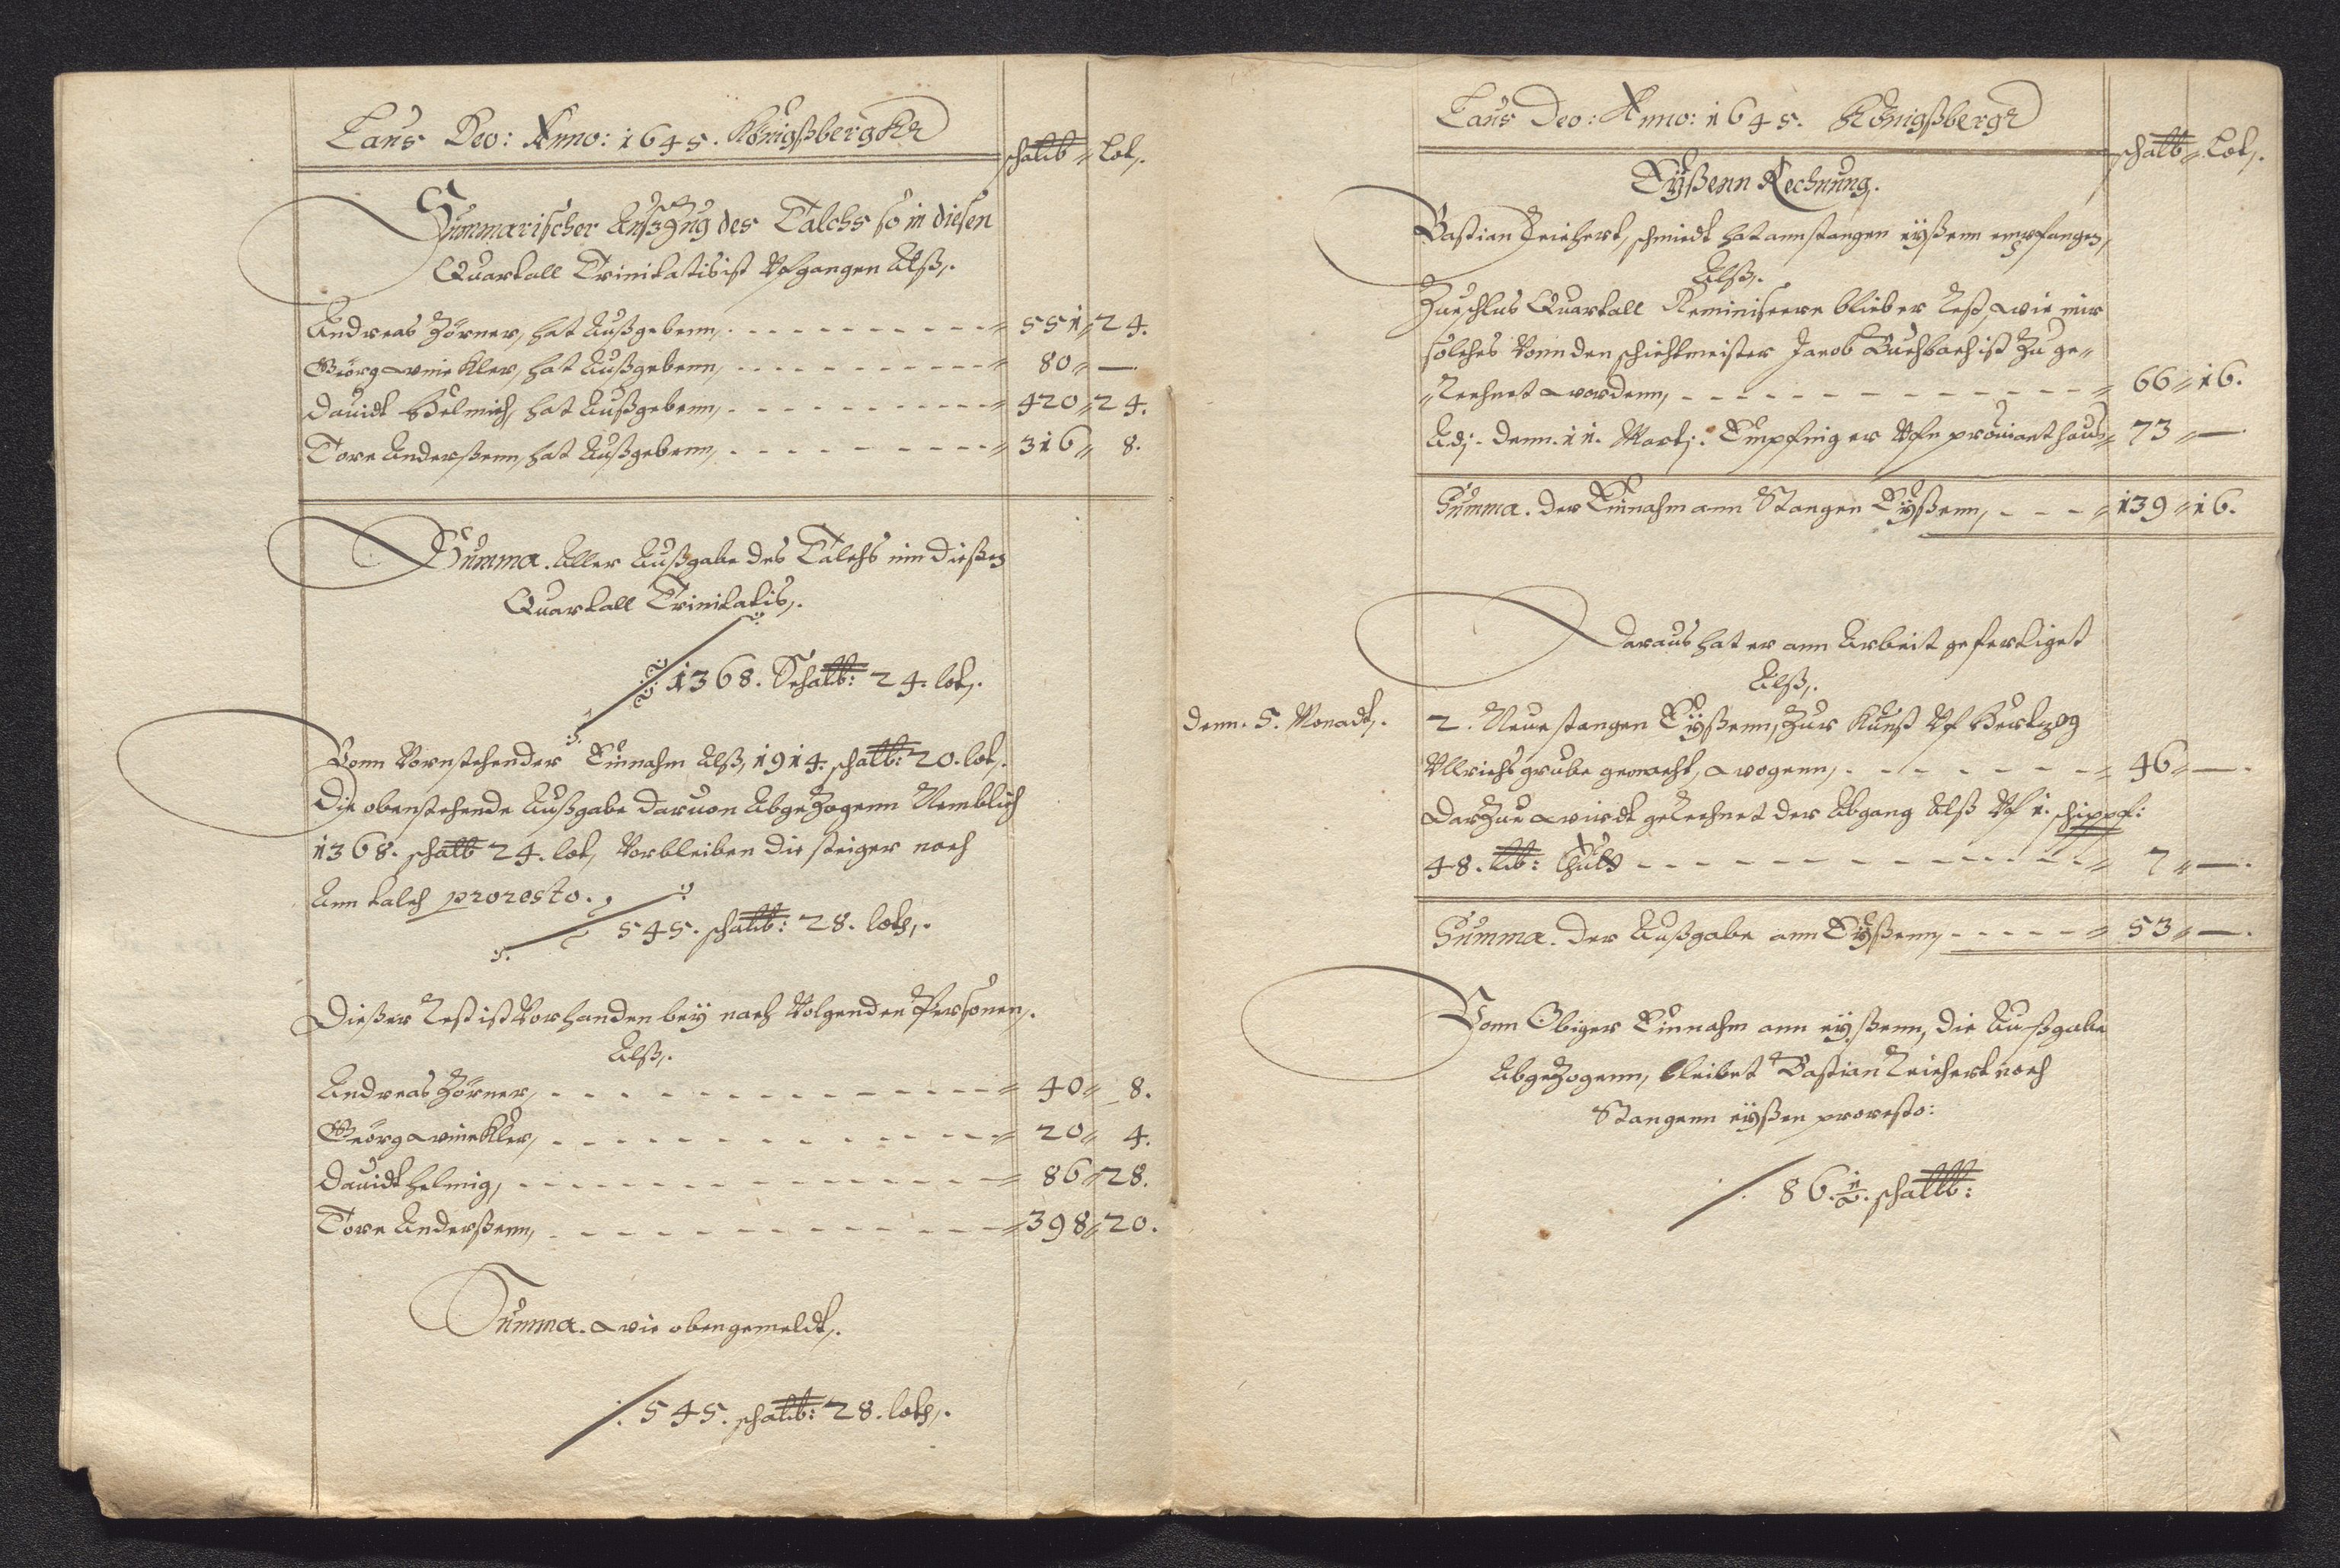 Laus Deo: Anno: 1645. Königßbergkh
schalb lot,.
Summarischer Außzug des Talchs so in diesen
Quartall Trinitatis ist Vfgangen Alß,.
Andreas Zörner, hat Außgebenn, 551 24.
Geörg Winckler, hat Außgebenn, 80 —
Dauidt Helmich, hat Außgebenn, 420 24.
Tore Anderßenn, hat Außgebenn, 316 8.
Summa. Aller Außgabe des Talchs inn dießen
Quartall Trinitatis,.
1368. Schalb: 24. lot,.
Vonn Vornstehender Einnahm Alß, 1914. schalb: 20. lot,.
Die obenstehende Außgabe daruon Abgezogenn Nemblich
1368. schalb 24. lot, Vorbleiben die steiger noch
Ann talch proresto.
545. schalb: 28. loth,.
Dießer Rest ist Vorhanden bey nach Volgenden Persohnen,.
Alß,.
Andreas Zörner, 40 8.
Geörg Winckler, 20 4.
Dauidt Helmig, 86 28.
Tore Anderßenn, 398 20.
Summa. Wie obengemeldt,.
545. schalb: 28. loth,.
Laus Deo: Anno: 1645. Königßbergk
schalb lot,.
Eyßenn Rechnung.
Bastian Reichert, schmiedt hat ann stangen eyßenn empfangen,
Alß,.
Zu schlus Quartall Reminiscere blieb er Rest, wie mir
solches Vonn den schichtmeister Jacob Buchbach ist zu ge-
Rechnet wordenn, 66 16.
Adj. denn. 11. Martj. Empfing er Vfn prouiant haus 73 —
Summa. der Einnahm ann Stangen Eyßenn, 139 16.
Daraus hat er ann Arbeit gefertiget
Alß,.
denn. 5. Monadt,. 2. Neue stangen Eyßenn, Zur Kunst Vf Hertzog
Vllrichs grube gemacht, wogenn, 46 —.
Darzue wirdt gerechnet der Abgang Alß Vf 1. schippf:
48. lb: thuts 7 —.
Summa. der Außgabe ann Eyßenn, 53 —.
Vonn Obiger Einnahm ann eyßenn, die Außgabe
Abgezogenn, bleibet Bastian Reichert noch
Stangenn eyßen proresto:
86. 1/2. schalb: